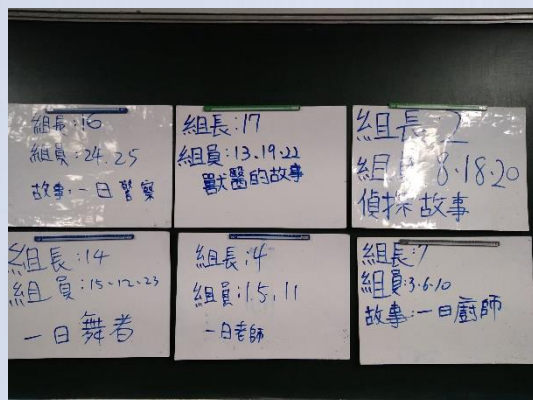 組長:16
組員:24.25
故事:一日警察
組長:17
組員:13.19.22
獸醫的故事
組長:2
組員:8.18.20
偵探故事
組長:14
組員:15.12.23
一日舞者
組長:4
組員:1.5.11
一日老師
組長:7
組員:3.6.10
故事:一日廚師